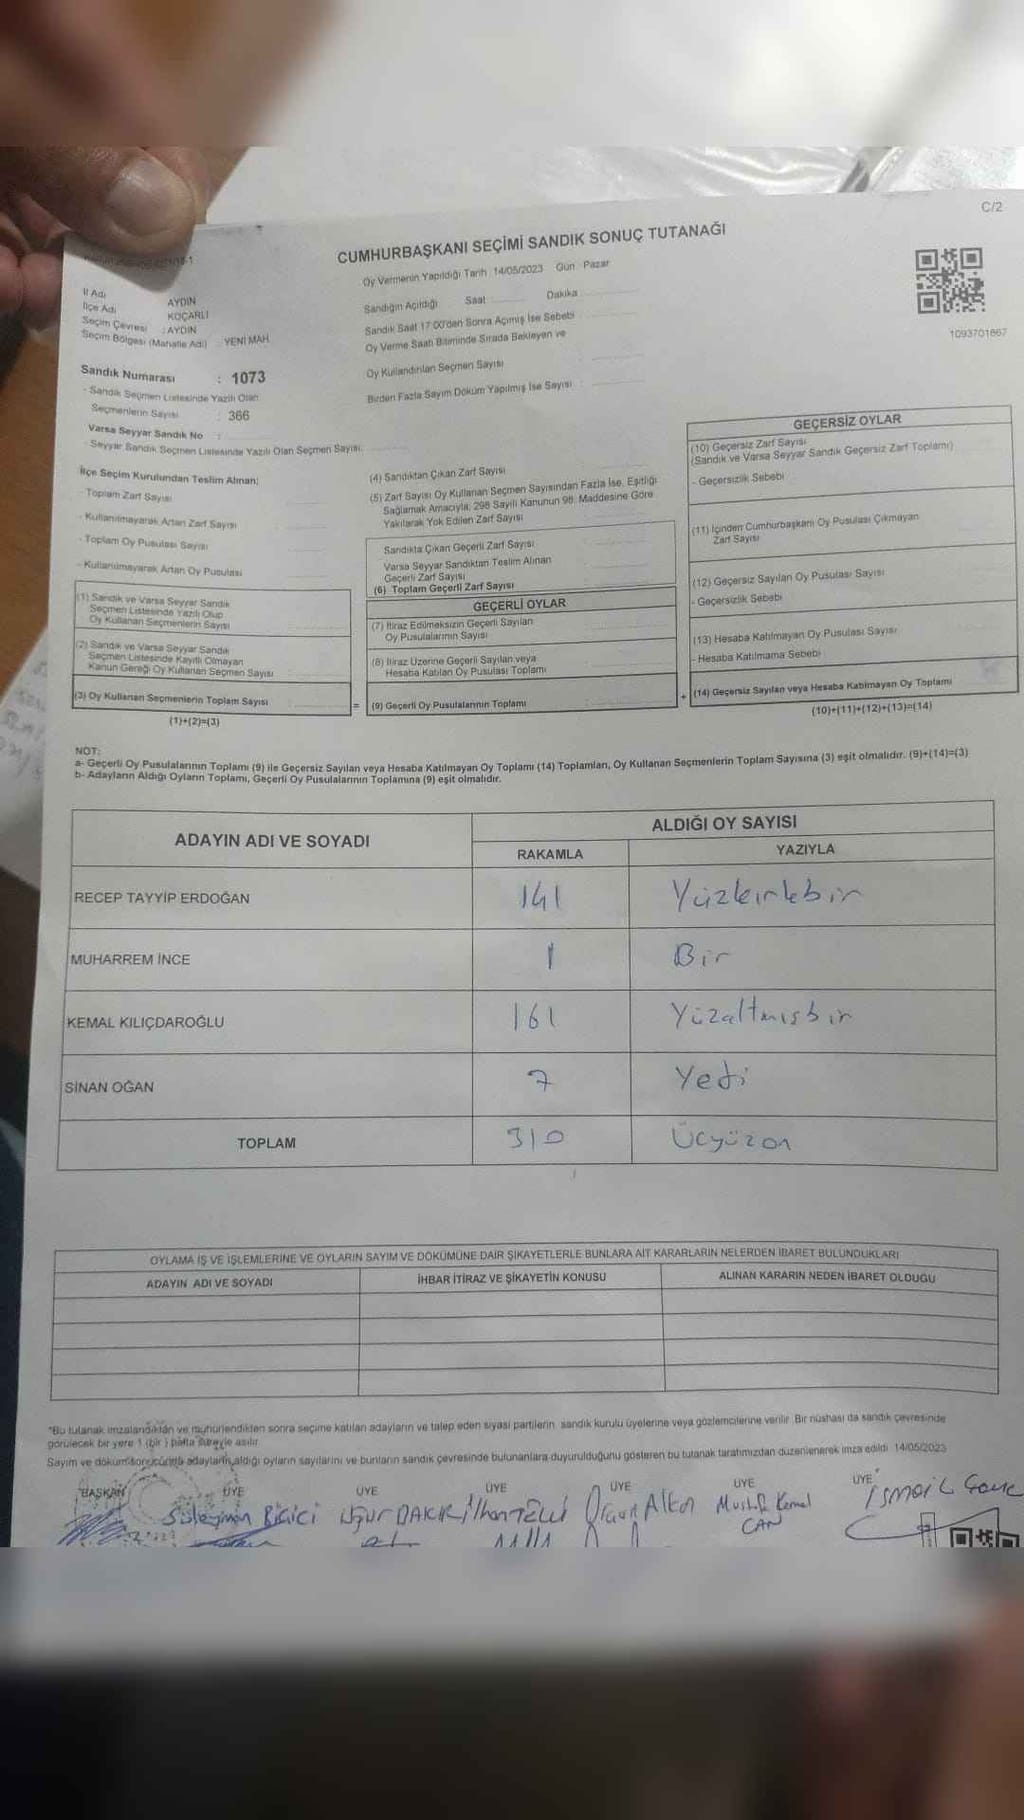 C/2
CUMHURBAŞKANI SEÇİMİ SANDIK SONUÇ TUTANAĞI
Oy Vermenin Yapıldığı Tarih 14/05/2023 Gün Pazar
İl Adı AYDIN
İlçe Adı KOÇARLI
Seçim Çevresi : AYDIN
Seçim Bölgesi (Mahalle Adı) YENİ MAH.
Sandık Numarası : 1073
- Sandık Seçmen Listesinde Yazılı Olan
Seçmenlerin Sayısı : 366
Varsa Seyyar Sandık No :
- Seyyar Sandık Seçmen Listesinde Yazılı Olan Seçmen Sayısı:
Sandığın Açıldığı Saat Dakika
Sandık Saat 17:00'den Sonra Açılmış İse Sebebi
Oy Verme Saati Bitiminde Sırada Bekleyen ve
Oy Kullandırılan Seçmen Sayısı
Birden Fazla Sayım Döküm Yapılmış İse Sayısı :
1093701867
İlçe Seçim Kurulundan Teslim Alınan;
- Toplam Zarf Sayısı
- Kullanılmayarak Artan Zarf Sayısı
- Toplam Oy Pusulası Sayısı
- Kullanılmayarak Artan Oy Pusulası
(1) Sandık ve Varsa Seyyar Sandık
Seçmen Listesinde Yazılı Olup
Oy Kullanan Seçmenlerin Sayısı
(2) Sandık ve Varsa Seyyar Sandık
Seçmen Listesinde Kayıtlı Olmayan
Kanun Gereği Oy Kullanan Seçmen Sayısı
(3) Oy Kullanan Seçmenlerin Toplam Sayısı
(1)+(2)=(3)
(4) Sandıktan Çıkan Zarf Sayısı
(5) Zarf Sayısı Oy Kullanan Seçmen Sayısından Fazla İse, Eşitliği
Sağlamak Amacıyla; 298 Sayılı Kanunun 98. Maddesine Göre
Yakılarak Yok Edilen Zarf Sayısı
Sandıkta Çıkan Geçerli Zarf Sayısı
Varsa Seyyar Sandıktan Teslim Alınan
Geçerli Zarf Sayısı
(6) Toplam Geçerli Zarf Sayısı
GEÇERLİ OYLAR
(7) İtiraz Edilmeksizin Geçerli Sayılan
Oy Pusulalarının Sayısı
(8) İtiraz Üzerine Geçerli Sayılan veya
Hesaba Katılan Oy Pusulası Toplamı
= (9) Geçerli Oy Pusulalarının Toplamı
GEÇERSİZ OYLAR
(10) Geçersiz Zarf Sayısı
(Sandık ve Varsa Seyyar Sandık Geçersiz Zarf Toplamı)
- Geçersizlik Sebebi
(11) İçinden Cumhurbaşkanı Oy Pusulası Çıkmayan
Zarf Sayısı
(12) Geçersiz Sayılan Oy Pusulası Sayısı
- Geçersizlik Sebebi
(13) Hesaba Katılmayan Oy Pusulası Sayısı
- Hesaba Katılmama Sebebi
+ (14) Geçersiz Sayılan veya Hesaba Katılmayan Oy Toplamı
(10)+(11)+(12)+(13)=(14)
NOT:
a- Geçerli Oy Pusulalarının Toplamı (9) ile Geçersiz Sayılan veya Hesaba Katılmayan Oy Toplamı (14) Toplamları, Oy Kullanan Seçmenlerin Toplam Sayısına (3) eşit olmalıdır. (9)+(14)=(3)
b- Adayların Aldığı Oyların Toplamı, Geçerli Oy Pusulalarının Toplamına (9) eşit olmalıdır.
ADAYIN ADI VE SOYADI ALDIĞI OY SAYISI
RAKAMLA YAZIYLA
RECEP TAYYİP ERDOĞAN 141 Yüzkırkbir
MUHARREM İNCE 1 Bir
KEMAL KILIÇDAROĞLU 161 Yüzaltmışbir
SİNAN OĞAN 7 Yedi
TOPLAM 310 Üçyüzon
OYLAMA İŞ VE İŞLEMLERİNE VE OYLARIN SAYIM VE DÖKÜMÜNE DAİR ŞİKAYETLERLE BUNLARA AİT KARARLARIN NELERDEN İBARET BULUNDUKLARI
ADAYIN ADI VE SOYADI İHBAR İTİRAZ VE ŞİKAYETİN KONUSU ALINAN KARARIN NEDEN İBARET OLDUĞU
*Bu tutanak imzalandıktan ve mühürlendikten sonra seçime katılan adayların ve talep eden siyasi partilerin, sandık kurulu üyelerine veya gözlemcilerine verilir. Bir nüshası da sandık çevresinde
görülecek bir yere 1 (bir) hafta süreyle asılır.
Sayım ve döküm sonucunda adayların aldığı oyların sayılarını ve bunların sandık çevresinde bulunanlara duyurulduğunu gösteren bu tutanak tarafımızdan düzenlenerek imza edildi. 14/05/2023
BAŞKAN ÜYE ÜYE ÜYE ÜYE ÜYE ÜYE
Süleyman Uğur Mustafa Kemal İsmail
CAN